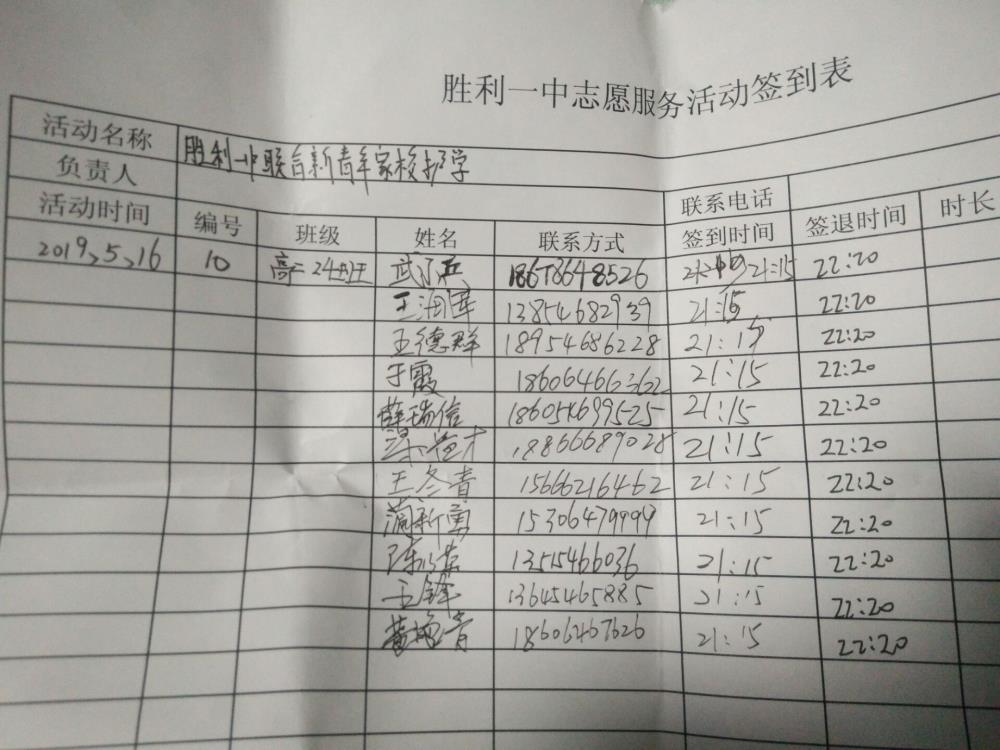 胜利一中志愿服务活动签到表
活动名称 胜利一中联合新青年家校护学
负责人 联系电话
活动时间 编号 班级 姓名 联系方式 签到时间 签退时间 时长
2019、5、16 10 高二24班 武 18678648526 21:15 22:20
王海军 13854682939 21:15 22:20
王德群 18954686228 21:15 22:20
于霞 18606466362 21:15 22:20
薛瑞信 186054699525 21:15 22:20
18866689028 21:15 22:20
王冬青 15666216462 21:15 22:20
蔺新勇 15306479999 21:15 22:20
陈 13515466036 21:15 22:20
王锋 13645465885 21:15 22:20
黄 青 18606467626 21:15 22:20